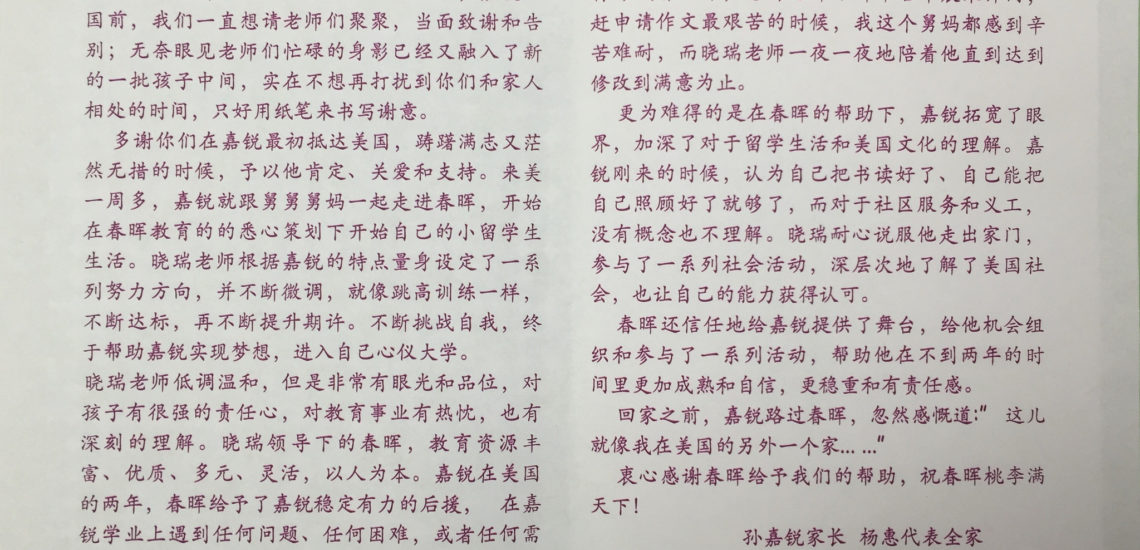 国前，我们一直想请老师们聚聚，当面致谢和告
别；无奈眼见老师们忙碌的身影已经又融入了新
的一批孩子中间，实在不想再打扰到你们和家人
相处的时间，只好用纸笔来书写谢意。
多谢你们在嘉锐最初抵达美国，踌躇满志又茫
然无措的时候，予以他肯定、关爱和支持。来美
一周多，嘉锐就跟舅舅舅妈一起走进春晖，开始
在春晖教育的的悉心策划下开始自己的小留学生
生活。晓瑞老师根据嘉锐的特点量身设定了一系
列努力方向，并不断微调，就像跳高训练一样，
不断达标，再不断提升期许。不断挑战自我，终
于帮助嘉锐实现梦想，进入自己心仪大学。
晓瑞老师低调温和，但是非常有眼光和品位，对
孩子有很强的责任心，对教育事业有热忱，也有
深刻的理解。晓瑞领导下的春晖，教育资源丰
富、优质、多元、灵活，以人为本。嘉锐在美国
的两年，春晖给予了嘉锐稳定有力的后援， 在嘉
锐学业上遇到任何问题、任何困难，或者任何需
赶申请作文最艰苦的时候，我这个舅妈都感到辛
苦难耐，而晓瑞老师一夜一夜地陪着他直到达到
修改到满意为止。
更为难得的是在春晖的帮助下，嘉锐拓宽了眼
界，加深了对于留学生活和美国文化的理解。嘉
锐刚来的时候，认为自己把书读好了、自己能把
自己照顾好了就够了，而对于社区服务和义工，
没有概念也不理解。晓瑞耐心说服他走出家门，
参与了一系列社会活动，深层次地了解了美国社
会，也让自己的能力获得认可。
春晖还信任地给嘉锐提供了舞台，给他机会组
织和参与了一系列活动，帮助他在不到两年的时
间里更加成熟和自信，更稳重和有责任感。
回家之前，嘉锐路过春晖，忽然感慨道:" 这儿
就像我在美国的另外一个家... ..."
衷心感谢春晖给予我们的帮助，祝春晖桃李满
天下！
孙嘉锐家长 杨惠代表全家